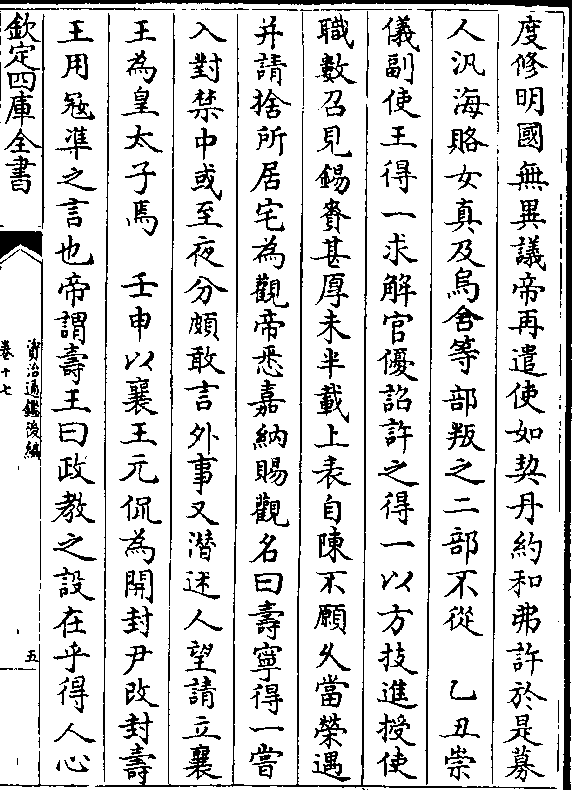 度修明國無異議帝再遣使如契丹約和弗許於是募
人汎海賂女真及烏舍等部叛之二部不從　乙丑崇
儀副使王得一求解官優詔許之得一以方技進授使
職數召見錫賚甚厚未半載上表自陳不願久當榮遇
并請捨所居宅為觀帝悉嘉納賜觀名曰壽寧得一嘗
入對禁中或至夜分頗敢言外事又潜述人望請立襄
王為皇太子焉　壬申以襄王元侃為開封尹改封壽
王用冦凖之言也帝謂壽王曰政教之設在乎得人心
欽定四庫全書
資治通鑑後編
卷十七
五